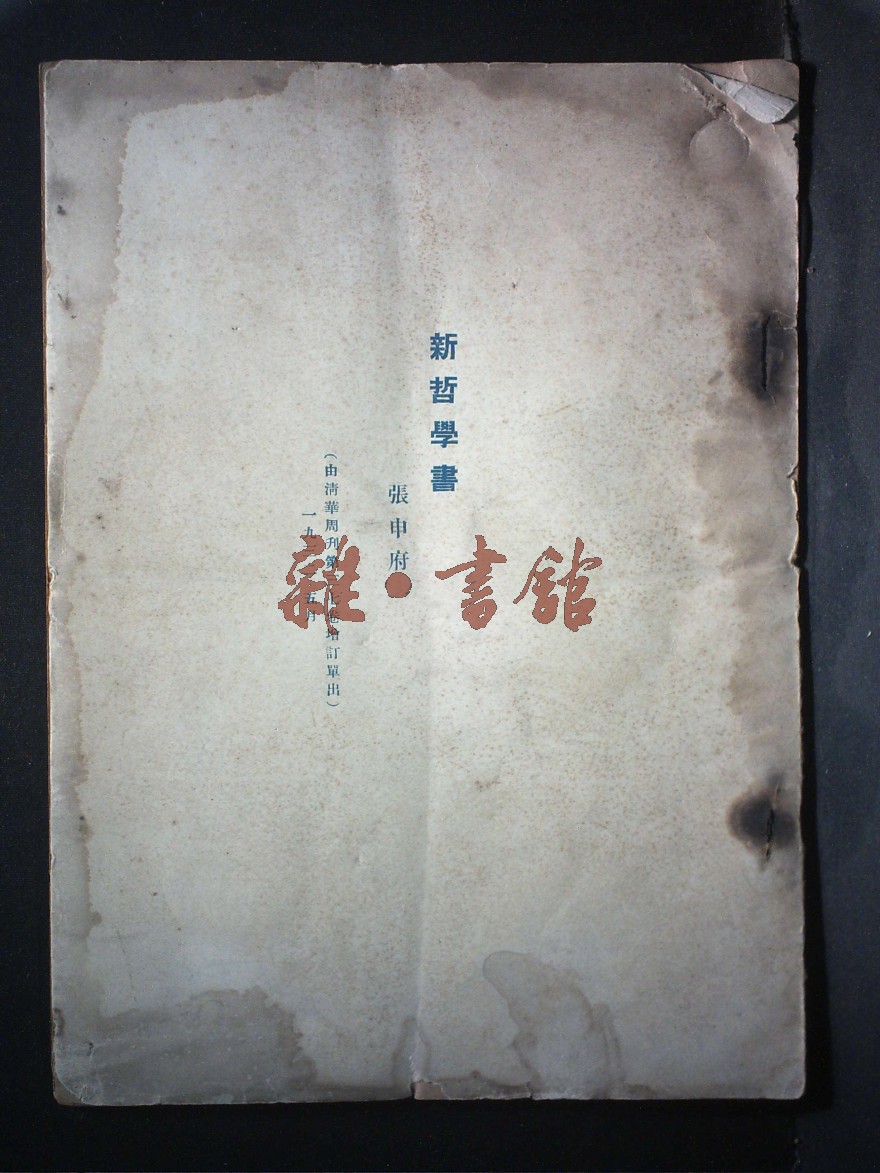 新哲學書
張申府
（由清華周刊第卷增訂單出）
一九五月
雜·書館